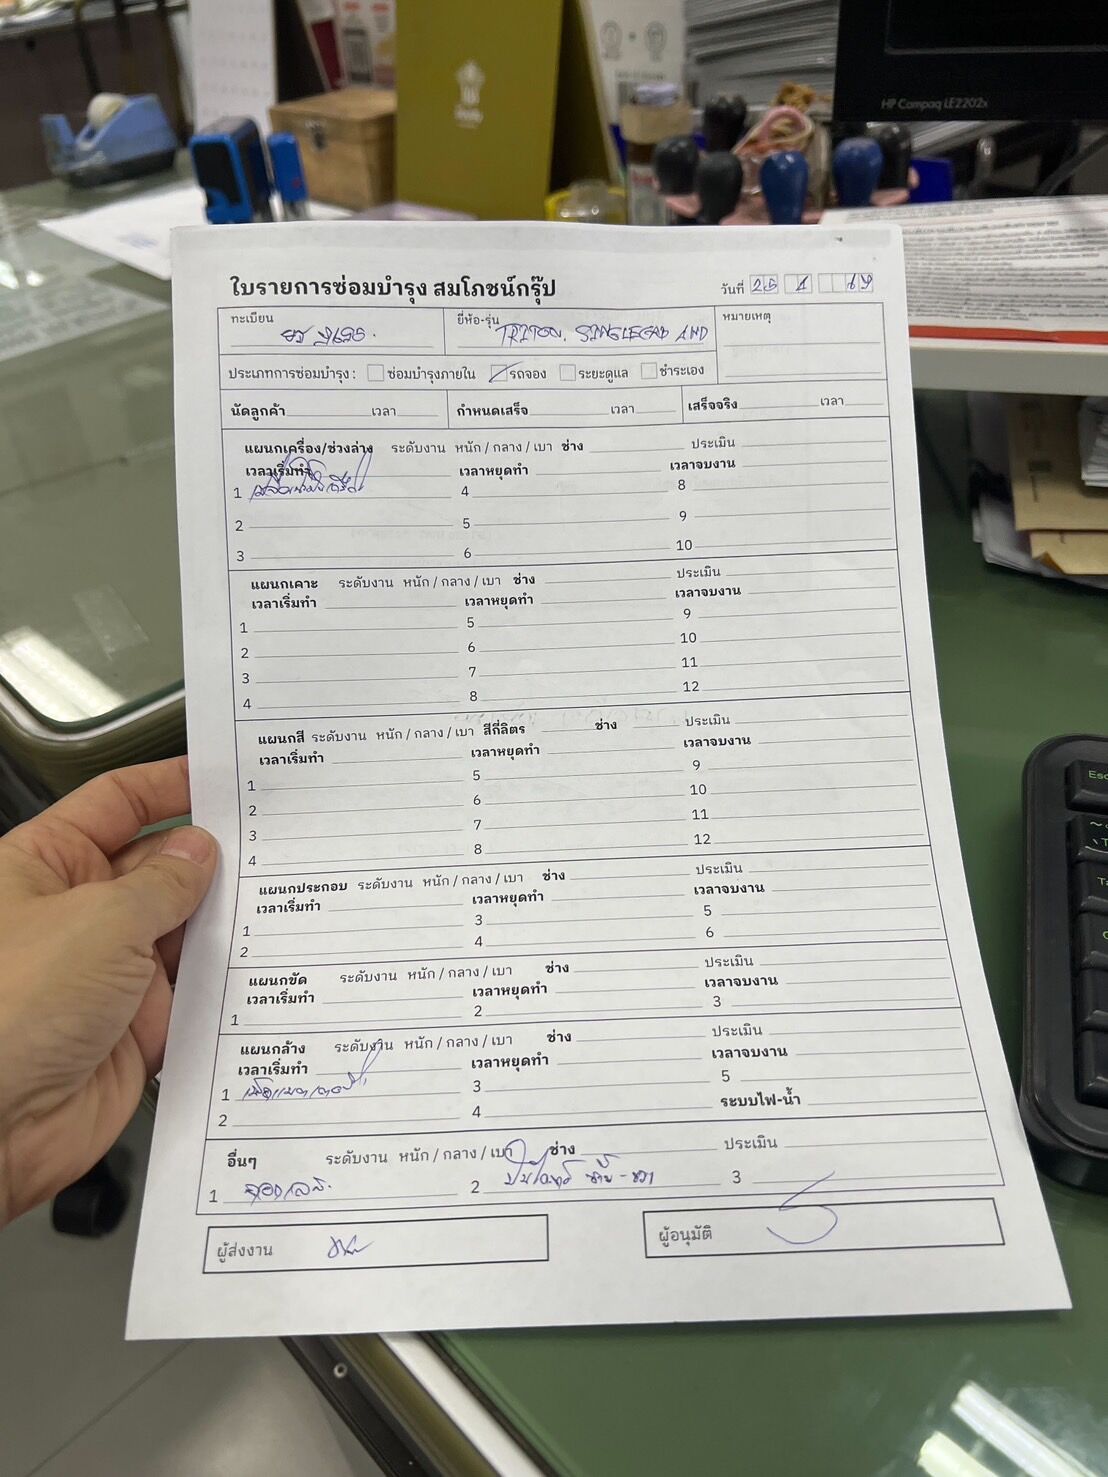 HP Compaq LE2202x
ใบรายการซ่อมบำรุง สมโภชน์กรุ๊ป
วันที่ 25 4 69
ทะเบียน ยี่ห้อ-รุ่น TRITON. SINGLECAB 4WD หมายเหตุ
ประเภทการซ่อมบำรุง : ซ่อมบำรุงภายใน รถจอง ระยะดูแล ชำระเอง
นัดลูกค้า เวลา กำหนดเสร็จ เวลา เสร็จจริง เวลา
แผนกเครื่อง/ช่วงล่าง ระดับงาน หนัก / กลาง / เบา ช่าง ประเมิน
เวลาเริ่มทำ เวลาหยุดทำ เวลาจบงาน
1 4 8
2 5 9
3 6 10
แผนกเคาะ ระดับงาน หนัก / กลาง / เบา ช่าง ประเมิน
เวลาเริ่มทำ เวลาหยุดทำ เวลาจบงาน
1 5 9
2 6 10
3 7 11
4 8 12
แผนกสี ระดับงาน หนัก / กลาง / เบา สีกี่ลิตร ช่าง ประเมิน
เวลาเริ่มทำ เวลาหยุดทำ เวลาจบงาน
1 5 9
2 6 10
3 7 11
4 8 12
แผนกประกอบ ระดับงาน หนัก / กลาง / เบา ช่าง ประเมิน
เวลาเริ่มทำ เวลาหยุดทำ เวลาจบงาน
1 3 5
2 4 6
แผนกขัด ระดับงาน หนัก / กลาง / เบา ช่าง ประเมิน
เวลาเริ่มทำ เวลาหยุดทำ เวลาจบงาน
1 2 3
แผนกล้าง ระดับงาน หนัก / กลาง / เบา ช่าง ประเมิน
เวลาเริ่มทำ เวลาหยุดทำ เวลาจบงาน
1 3 5
2 4 ระบบไฟ-น้ำ
อื่นๆ ระดับงาน หนัก / กลาง / เบา ช่าง ประเมิน
1 2 3
ผู้ส่งงาน ผู้อนุมัติ
Esc